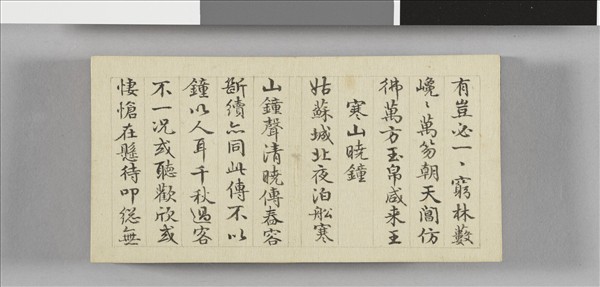 有豈必一〻窮林藪
巉〻萬笏朝天閶仿
彿萬方玉帛咸来王
寒山曉鐘
姑蘇城北夜泊船寒
山鐘聲清曉傳舂容
斷續亦同此傳不以
鐘以人耳千秋過客
不一況或聽歡欣或
悽愴在懸待叩總無